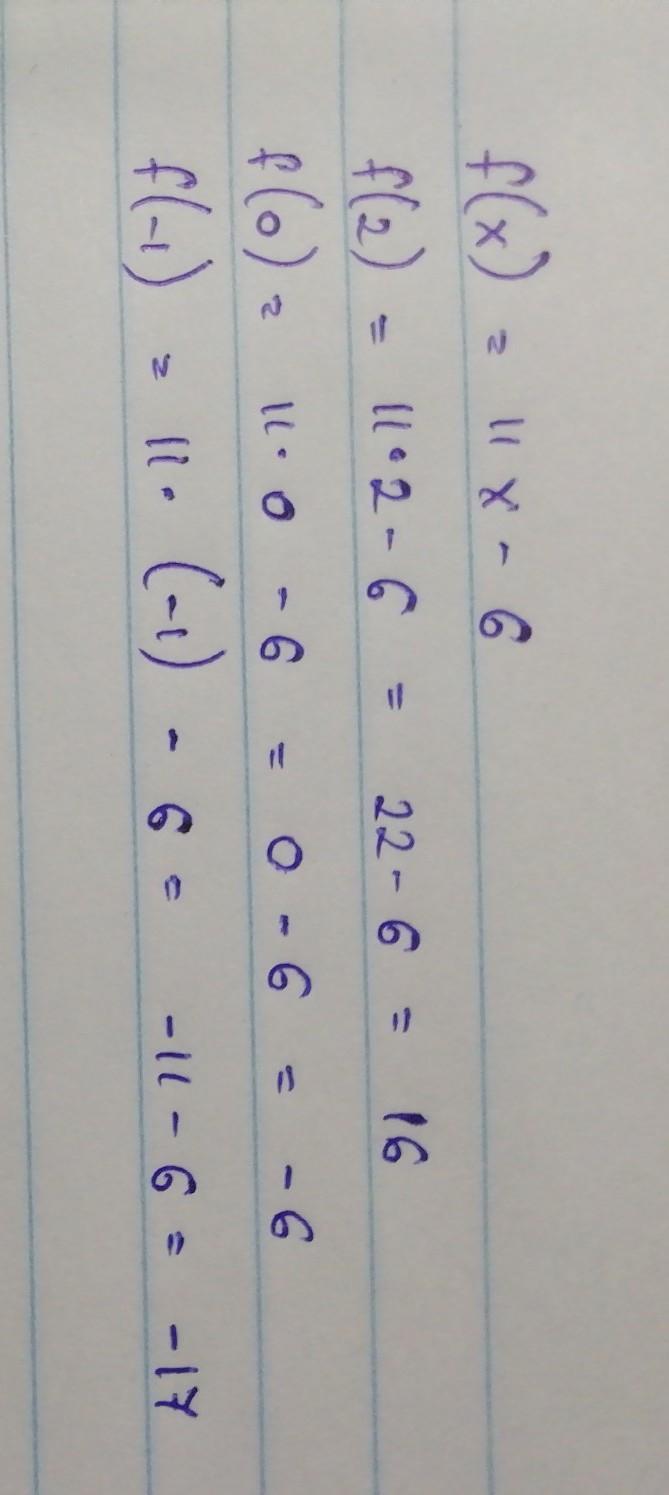 f(x) = 11x - 6
f(2) = 11·2 - 6 = 22 - 6 = 16
f(0) = 11·0 - 6 = 0 - 6 = -6
f(-1) = 11·(-1) - 6 = -11 - 6 = -17